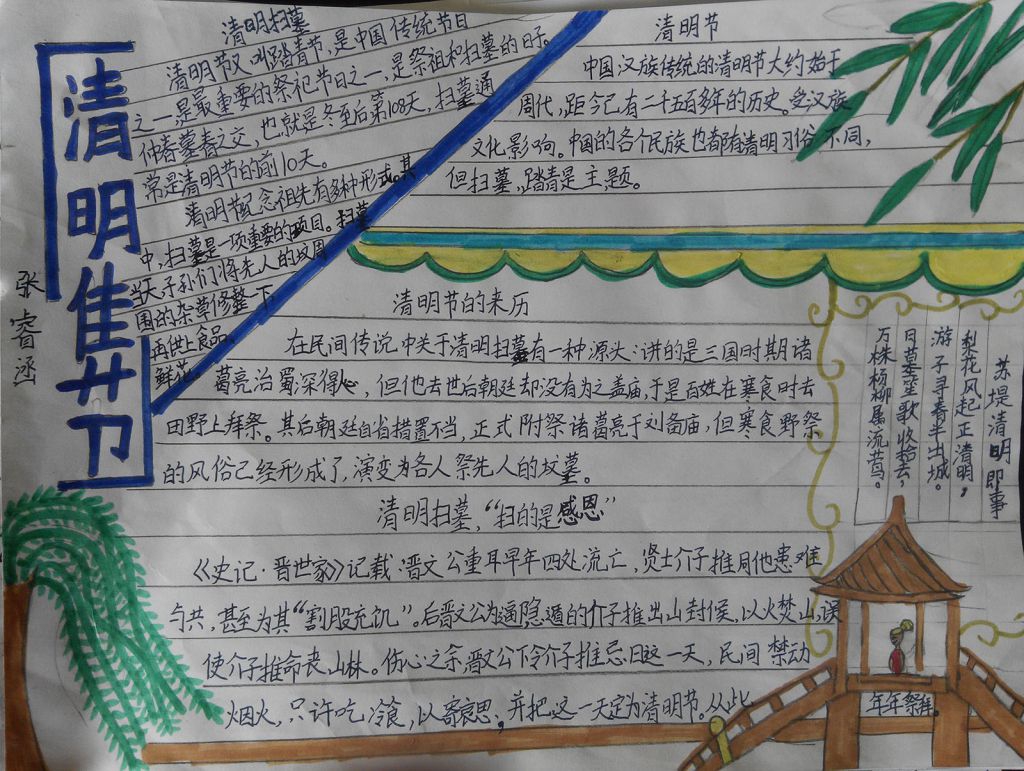 清明佳节
张睿涵
清明扫墓
清明节又叫踏青节，是中国传统节日
之一，是最重要的祭祀节日之一，是祭祖和扫墓的日子。
仲春暮春之交，也就是冬至后第108天，扫墓通
常是清明节的前10天。
清明节纪念祖先有多种形式。其
中，扫墓是一项重要的项目。扫墓
当天子孙们将先人的坟周
围的杂草修整一下，
再供上食品、
鲜花
清明节
中国汉族传统的清明节大约始于
周代，距今已有二千五百多年的历史。受汉族
文化影响。中国的各个民族也都有清明习俗不同，
但扫墓，踏青是主题。
清明节的来历
在民间传说中关于清明扫墓有一种源头：讲的是三国时期诸
葛亮治蜀深得心，但他去世后朝廷却没有为之盖庙，于是百姓在寒食时去
田野上拜祭。其后朝廷自省措置不当，正式附祭诸葛亮于刘备庙，但寒食野祭
的风俗已经形成了，演变为各人祭先人的坟墓。
清明扫墓，“扫的是感恩”
《史记·晋世家》记载：晋文公重耳早年四处流亡，贤士介子推周他患难
与共，甚至为其“割股充饥”。后晋文公为逼隐遁的介子推出山封侯，以火焚山，误
使介子推命丧山林。伤心之余，晋文公下令介子推忌日这一天，民间禁动
烟火，只许吃冷食，以寄哀思，并把这一天定为清明节。从此
年年祭拜。
苏堤清明即事
梨花风起正清明，
游子寻春半出城。
日墓笙歌收拾去，
万株杨柳属流莺。